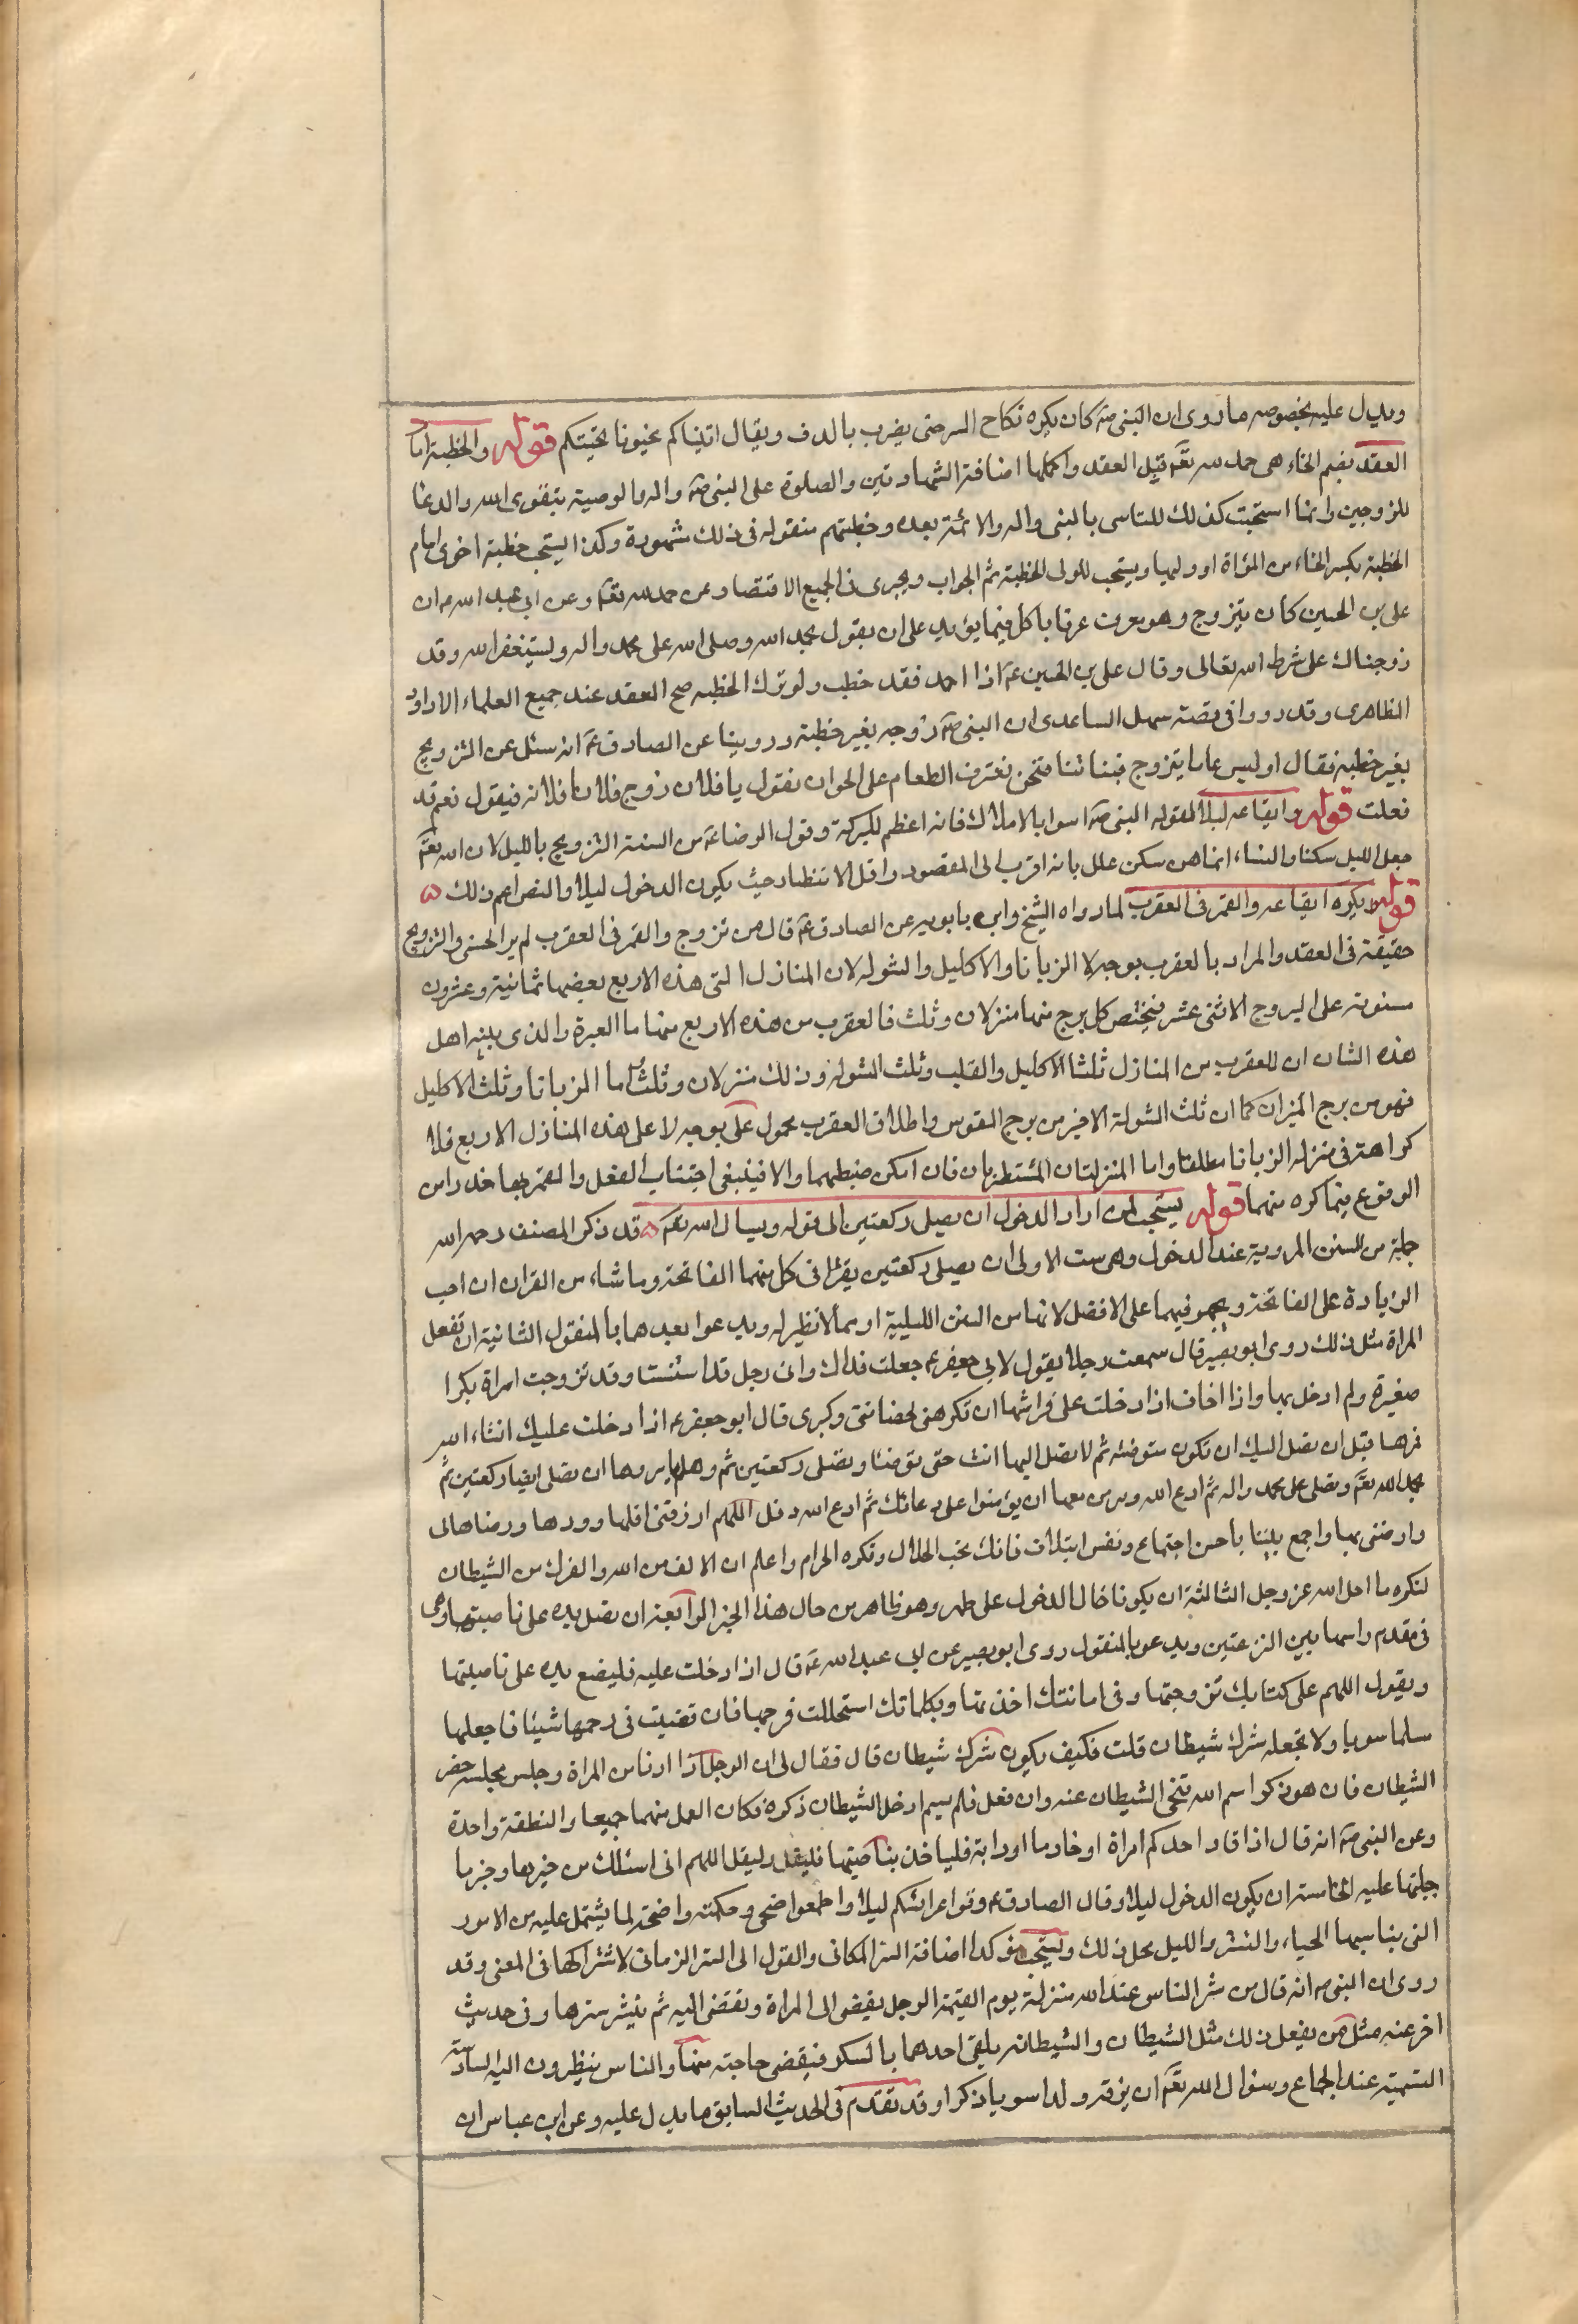 ويدل عليه بخصوصه ما روى ان النبى صه كان يكره نكاح السر حتى يضرب بالدف ويقال اتيناكم فحيونا نحيتكم قوله والخطبة امام
العقد بضم الخاء هى حمد لله تعَّم قبل العقد واكملها اضافة الشهادتين والصلوة على النبى صه واله والوصية بتقوى الله والدعا
للزوجين وانما استحبت كذلك للتاسى بالنبى واله والائمة بعده وخطبتهم منقوله فى ذلك مشهورة وكذا يستحب خطبة اخرى امام
الخطبة بكسر الخاء من المراة او وليها ويستحب للولى الخطبة ثم الجواب ويجزى فى الجميع الاقتصار عن حمد لله تعَّم وعن ابى عبد الله ع ان
على بن الحسين كان يتزوج وهو يعرف عرقا باكل فيما يزيد على ان يقول بحمد الله وصلى الله على محمد واله ونستغفر الله وقد
زوجناك على شرط الله تعالى وقال على بن الحسين عَ اذا احمد فقد خطب ولو ترك الخطبه صح العقد عند جميع العلماء الا داود
الظاهرى وقد رووا فى قصة سهل الساعدى ان النبى صه زوجه بغير خطبة وروينا عن الصادق عَ انه سئل عن التزويج
بغير خطبة فقال اوليس عاما يتزوج فبناتنا فنحن نعترف الطعام على الخوان نقول يا فلان زوج فلانا فلانه فيقول نعم قد
فعلت قوله وايقاعه ليلا لقوله النبى صه اسوا بالاملاك فانه اعظم للبركة وقول الرضا عَ من السنة التزويج بالليل لان الله تعَّم
جعل الليل سكنا والنساء انما هن سكن علل بانه اقرب الى المقصود واقل الانتظار حيث يكون الدخول ليلا والنص اعم ذلك ۵
قوله ويكره ايقاعه والقمر فى العقرب لما رواه الشيخ وابن بابويه عن الصادق عَ قال من تزوج والقمر فى العقرب لم ير الحسنى والتزويج
حقيقة فى العقد والمراد بالعقرب بوجه لا الزبانا والاكليل والشوله لان المنازل التى هذه الاربع بعضها ثمانية وعشرون
مستوية على البروج الاثنى عشر فيختص كل برج منها منزلان وثلث فالعقرب من هذه الاربع منها ما العبرة والذى بينه اهل
هذه الشان ان للعقرب من المنازل ثلثا الاكليل والقلب وثلث الشوله وذلك منزلان وثلث اما الزبانا وثلث الاكليل
فهو من برج الميزان كما ان ثلث الشولة الاخير من برج القوس واطلاق العقرب محمول على بوجه لا على هذه المنازل الاربع فلا
كراهة فى منزله الزبانا مطلقا واما المنزلتان المشتطرتان فان امكن ضبطهما والا فينبغى اجتناب الفعل والقمر بها حذرا من
الوقوع فيما كره منهما قوله يستحب لمن اراد الدخول ان يصلى ركعتين الى قوله ويسال الله تعَّم ۵ قد ذكر المصنف رحمه الله
جملة من السنن المروية عند الدخول وهى ست الاولى ان يصلى ركعتين يقرا فى كل منهما الفاتحة وما شاء من القران ان احب
الزيادة على الفاتحة ويجهر فيهما على الافضل لانها من السنن الليلية او مما لا نظير له ويدعوا بعدهما بالمنقول الثانية ان تفعل
المراة مثل ذلك روى ابو بصير قال سمعت رجلا يقول لابى جعفر ع جعلت فداك وانى رجل قد اسننت وقد تزوجت امراة بكرا
صغيرة ولم ادخل بها واذا اخاف اذا دخلت على فراشها ان تكرهنى لخضابى وكبرى قال ابو جعفر ع اذا دخلت عليك انشاء الله
فمرها قبل ان تصل اليك ان تكون متوضئه ثم لا تصل اليها انت حتى توضئا وتصلى ركعتين ثم وهلم يامروها ان تصلى ايضا ركعتين ثم
بحمد الله تعَّم وتصلى على محمد واله ثم ادع الله ومر من معها ان يؤمنوا على دعائك ثم ادع الله وقل اللهم ارزقنى الفها وودها ورضاها لى
وارضنى بها واجمع بيننا باحسن اجتماع ونفس ايتلاف فانك تحب الحلال وتكره الحرام واعلم ان الالف من الله والفرك من الشيطان
لنكره ما احل الله عز وجل الثالثة ان يكونا خال الدخول على طهر وهو ظاهر من حال هذا الخبر الرابعة ان تضل يده على ناصيتها وهى
فى مقدم راسها بين النزعتين ويدعو بالمنقول روى ابو بصير عن ابى عبد الله عَ قال اذا دخلت عليه فليضع يده على ناصيتها
ويقول اللهم على كتابك تزوجتها وفى امانتك اخذتها وبكلماتك استحللت فرجها فان قضيت فى رحمها شيئا فاجعلها
سلما سويا ولا تجعله شرك شيطان قلت فكيف يكون شرك شيطان قال فقال لى ان الرجل اذا ادنا من المراة وجلس مجلسه حضر
الشيطان فان هو ذكر اسم الله تنحى الشيطان عنه وان فعل فلم يسم ادخل الشيطان ذكره فكان العمل منهما جميعا والنطفة واحدة
وعن النبى صه انه قال اذا قاد احدكم امراة او خادما او دابة فلياخذ بناصيتها فليقل وليقل اللهم انى اسئلك من خيرها وخير ما
جبلتها عليه الخامسة ان يكون الدخول ليلا وقال الصادق ع زفوا عرائسكم ليلا واطعموا ضحى وحكمته واضحة لما يشتمل عليه من الامور
التى يناسبها الحياء والستر والليل محل ذلك ويستحب مؤكدا اضافة الستر المكانى والقول الى الستر الزمانى لاشتراكها فى المعنى وقد
روى ان النبى صه انه قال من شر الناس عند الله منزلة يوم القيمة الرجل يفضى الى المراة وتفضى اليه ثم ينشر سترها وفى حديث
اخر عنه مثل من يفعل ذلك مثل الشيطان والشيطانه يلقى احدهما بالسكر فيقضى حاجته منها والناس ينظرون اليه السادسة
التسمية عند الجماع وسؤال الله تعَّم ان يرزقه ولدا سويا ذكرا وقد تقدم فى الحديث السابق ما يدل عليه وعن ابن عباس ان